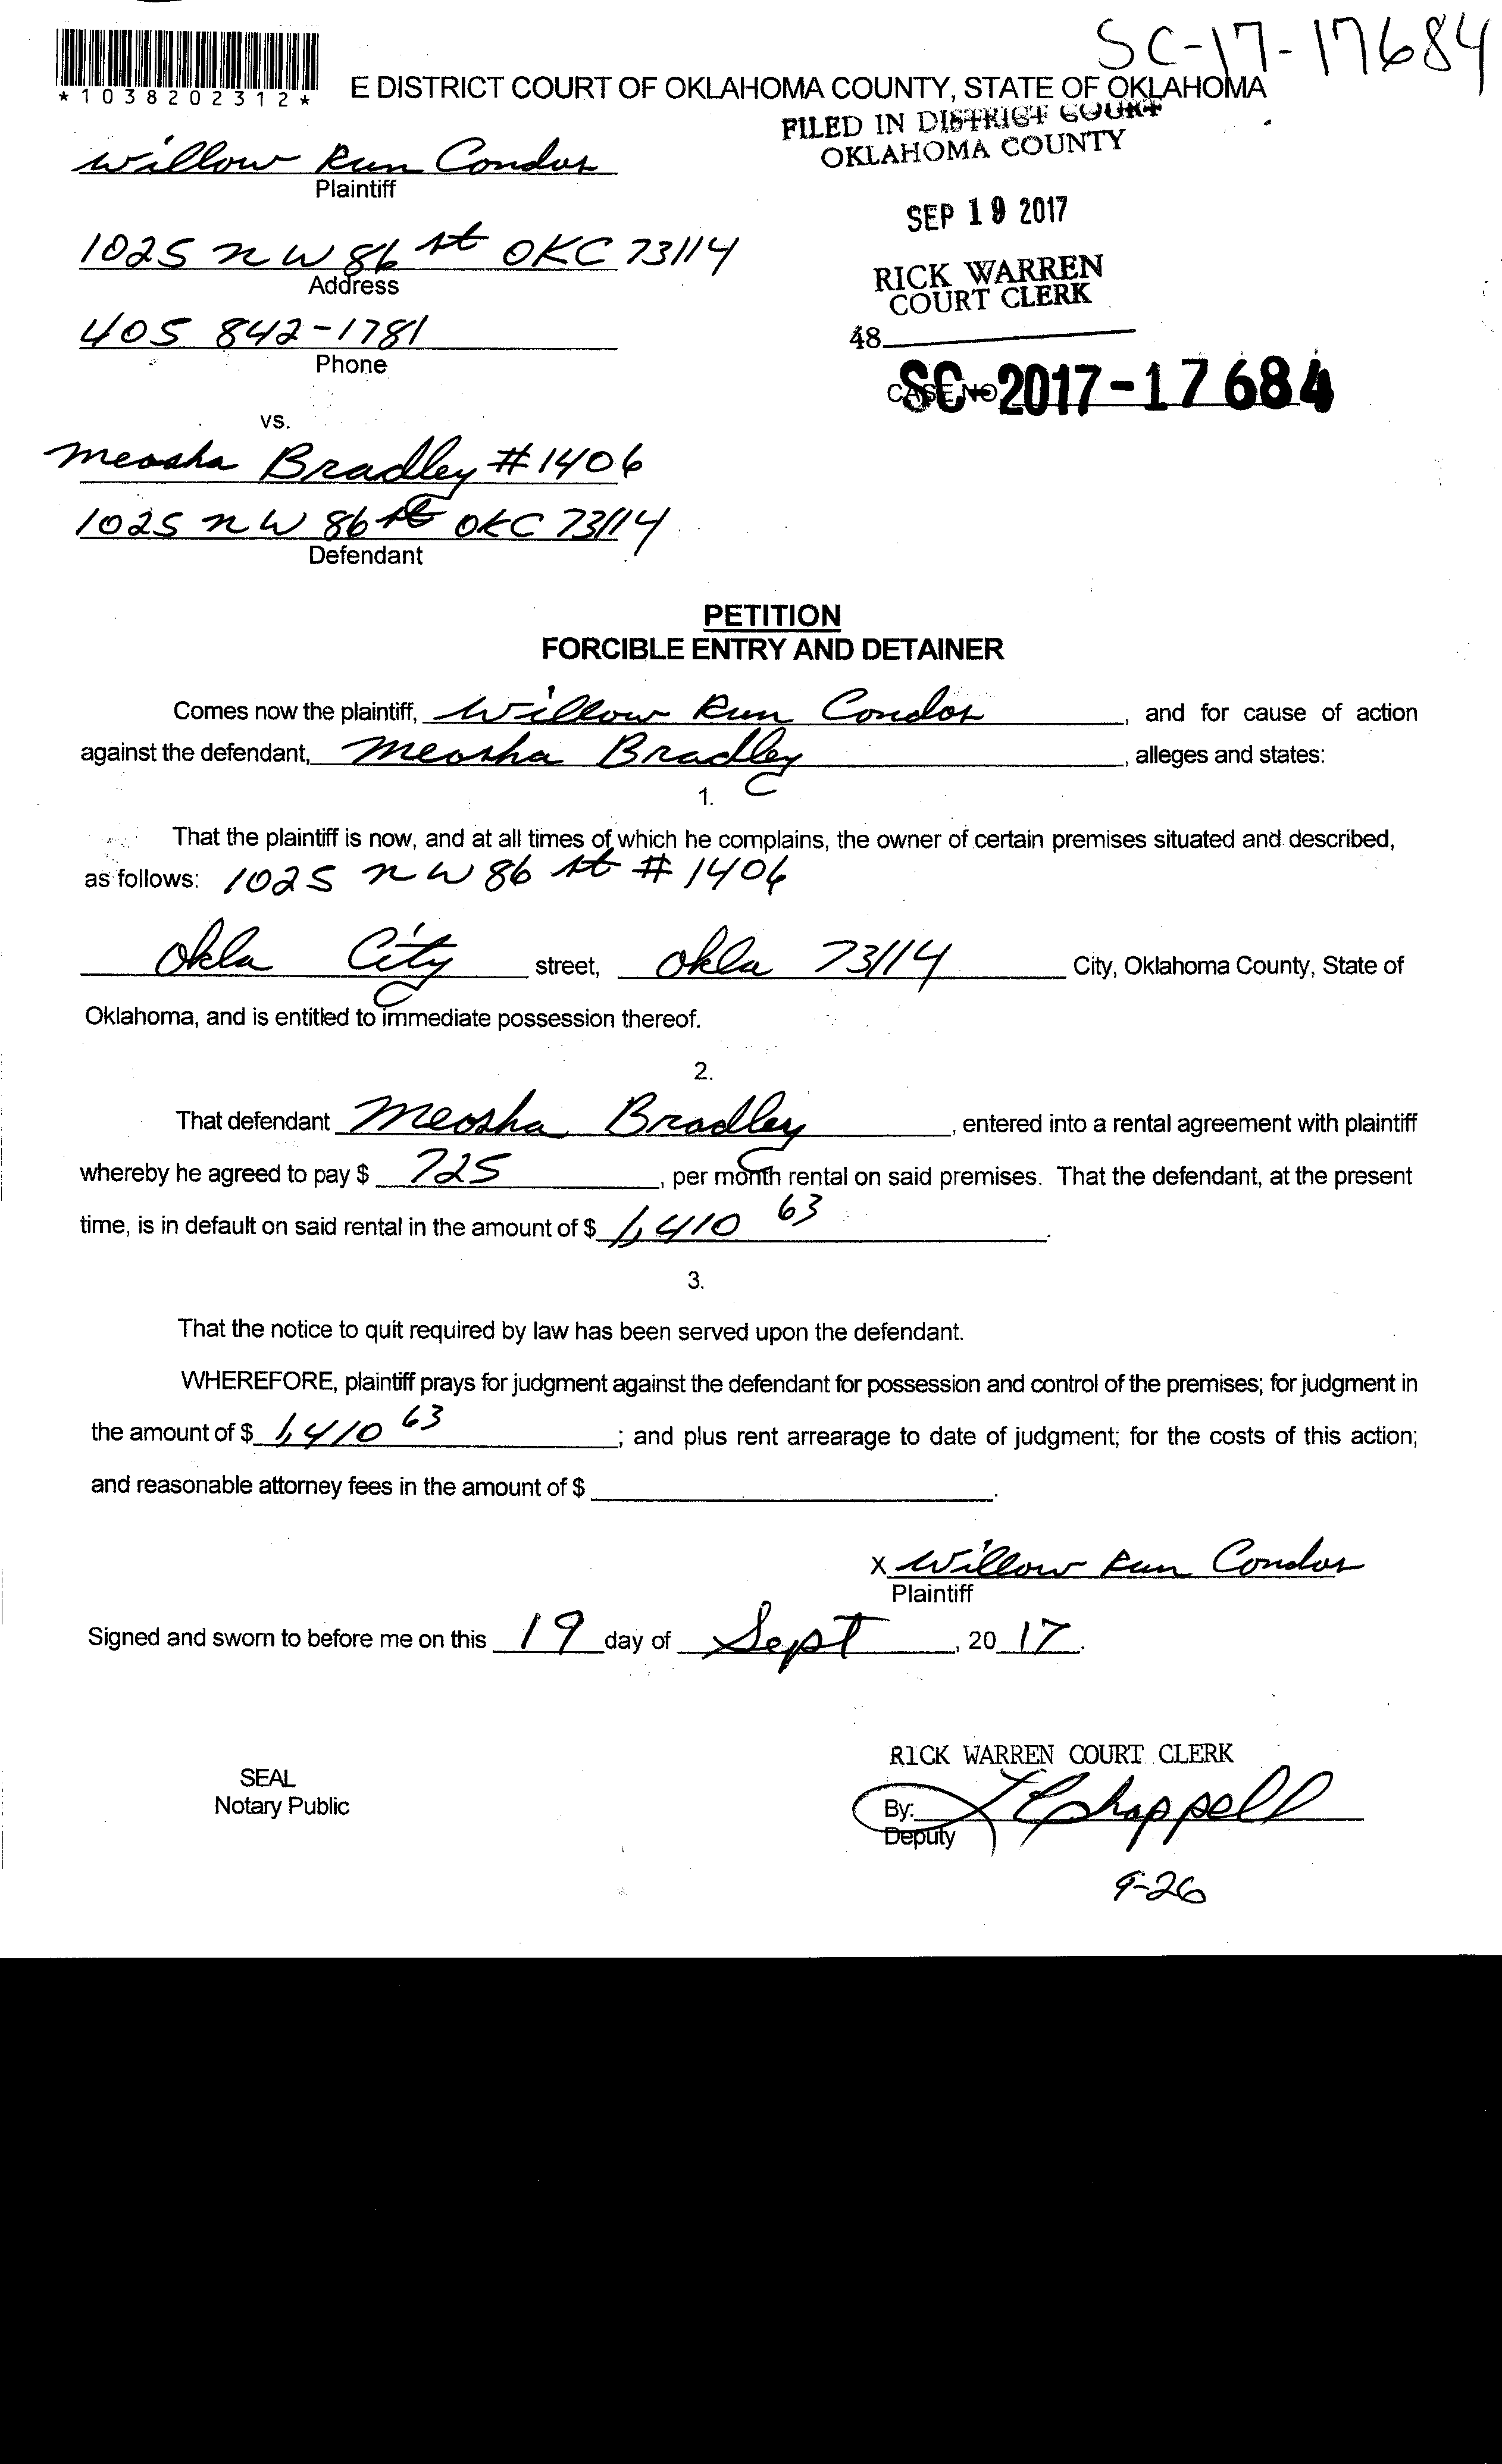 SC-17-17684
*1038202312*
E DISTRICT COURT OF OKLAHOMA COUNTY, STATE OF OKLAHOMA
FILED IN DISTRICT COURT
OKLAHOMA COUNTY
Willow Run Condos
Plaintiff
SEP 19 2017
1025 NW 86 st OKC 73114
Address
RICK WARREN
COURT CLERK
405 842-1781
Phone
48
CASE NO
SC-2017-17684
vs.
Meosha Bradley #1406
1025 NW 86 st OKC 73114
Defendant
PETITION
FORCIBLE ENTRY AND DETAINER
Comes now the plaintiff, Willow Run Condos, and for cause of action
against the defendant, Meosha Bradley, alleges and states:
1.
That the plaintiff is now, and at all times of which he complains, the owner of certain premises situated and described,
as follows: 1025 NW 86 st # 1406
Okla City street, Okla 73114 City, Oklahoma County, State of
Oklahoma, and is entitled to immediate possession thereof.
2.
That defendant Meosha Bradley, entered into a rental agreement with plaintiff
whereby he agreed to pay $ 725, per month rental on said premises. That the defendant, at the present
time, is in default on said rental in the amount of $ 1,410 63.
3.
That the notice to quit required by law has been served upon the defendant.
WHEREFORE, plaintiff prays for judgment against the defendant for possession and control of the premises; for judgment in
the amount of $ 1,410 63; and plus rent arrearage to date of judgment; for the costs of this action;
and reasonable attorney fees in the amount of $
X Willow Run Condos
Plaintiff
Signed and sworn to before me on this 19 day of Sept, 20 17.
RICK WARREN COURT CLERK
SEAL
Notary Public
By: Chappell
Deputy
9-26